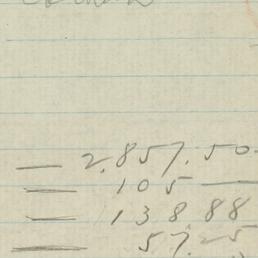 — 2,857.50
— 105 —
— 138 88
— 57.25